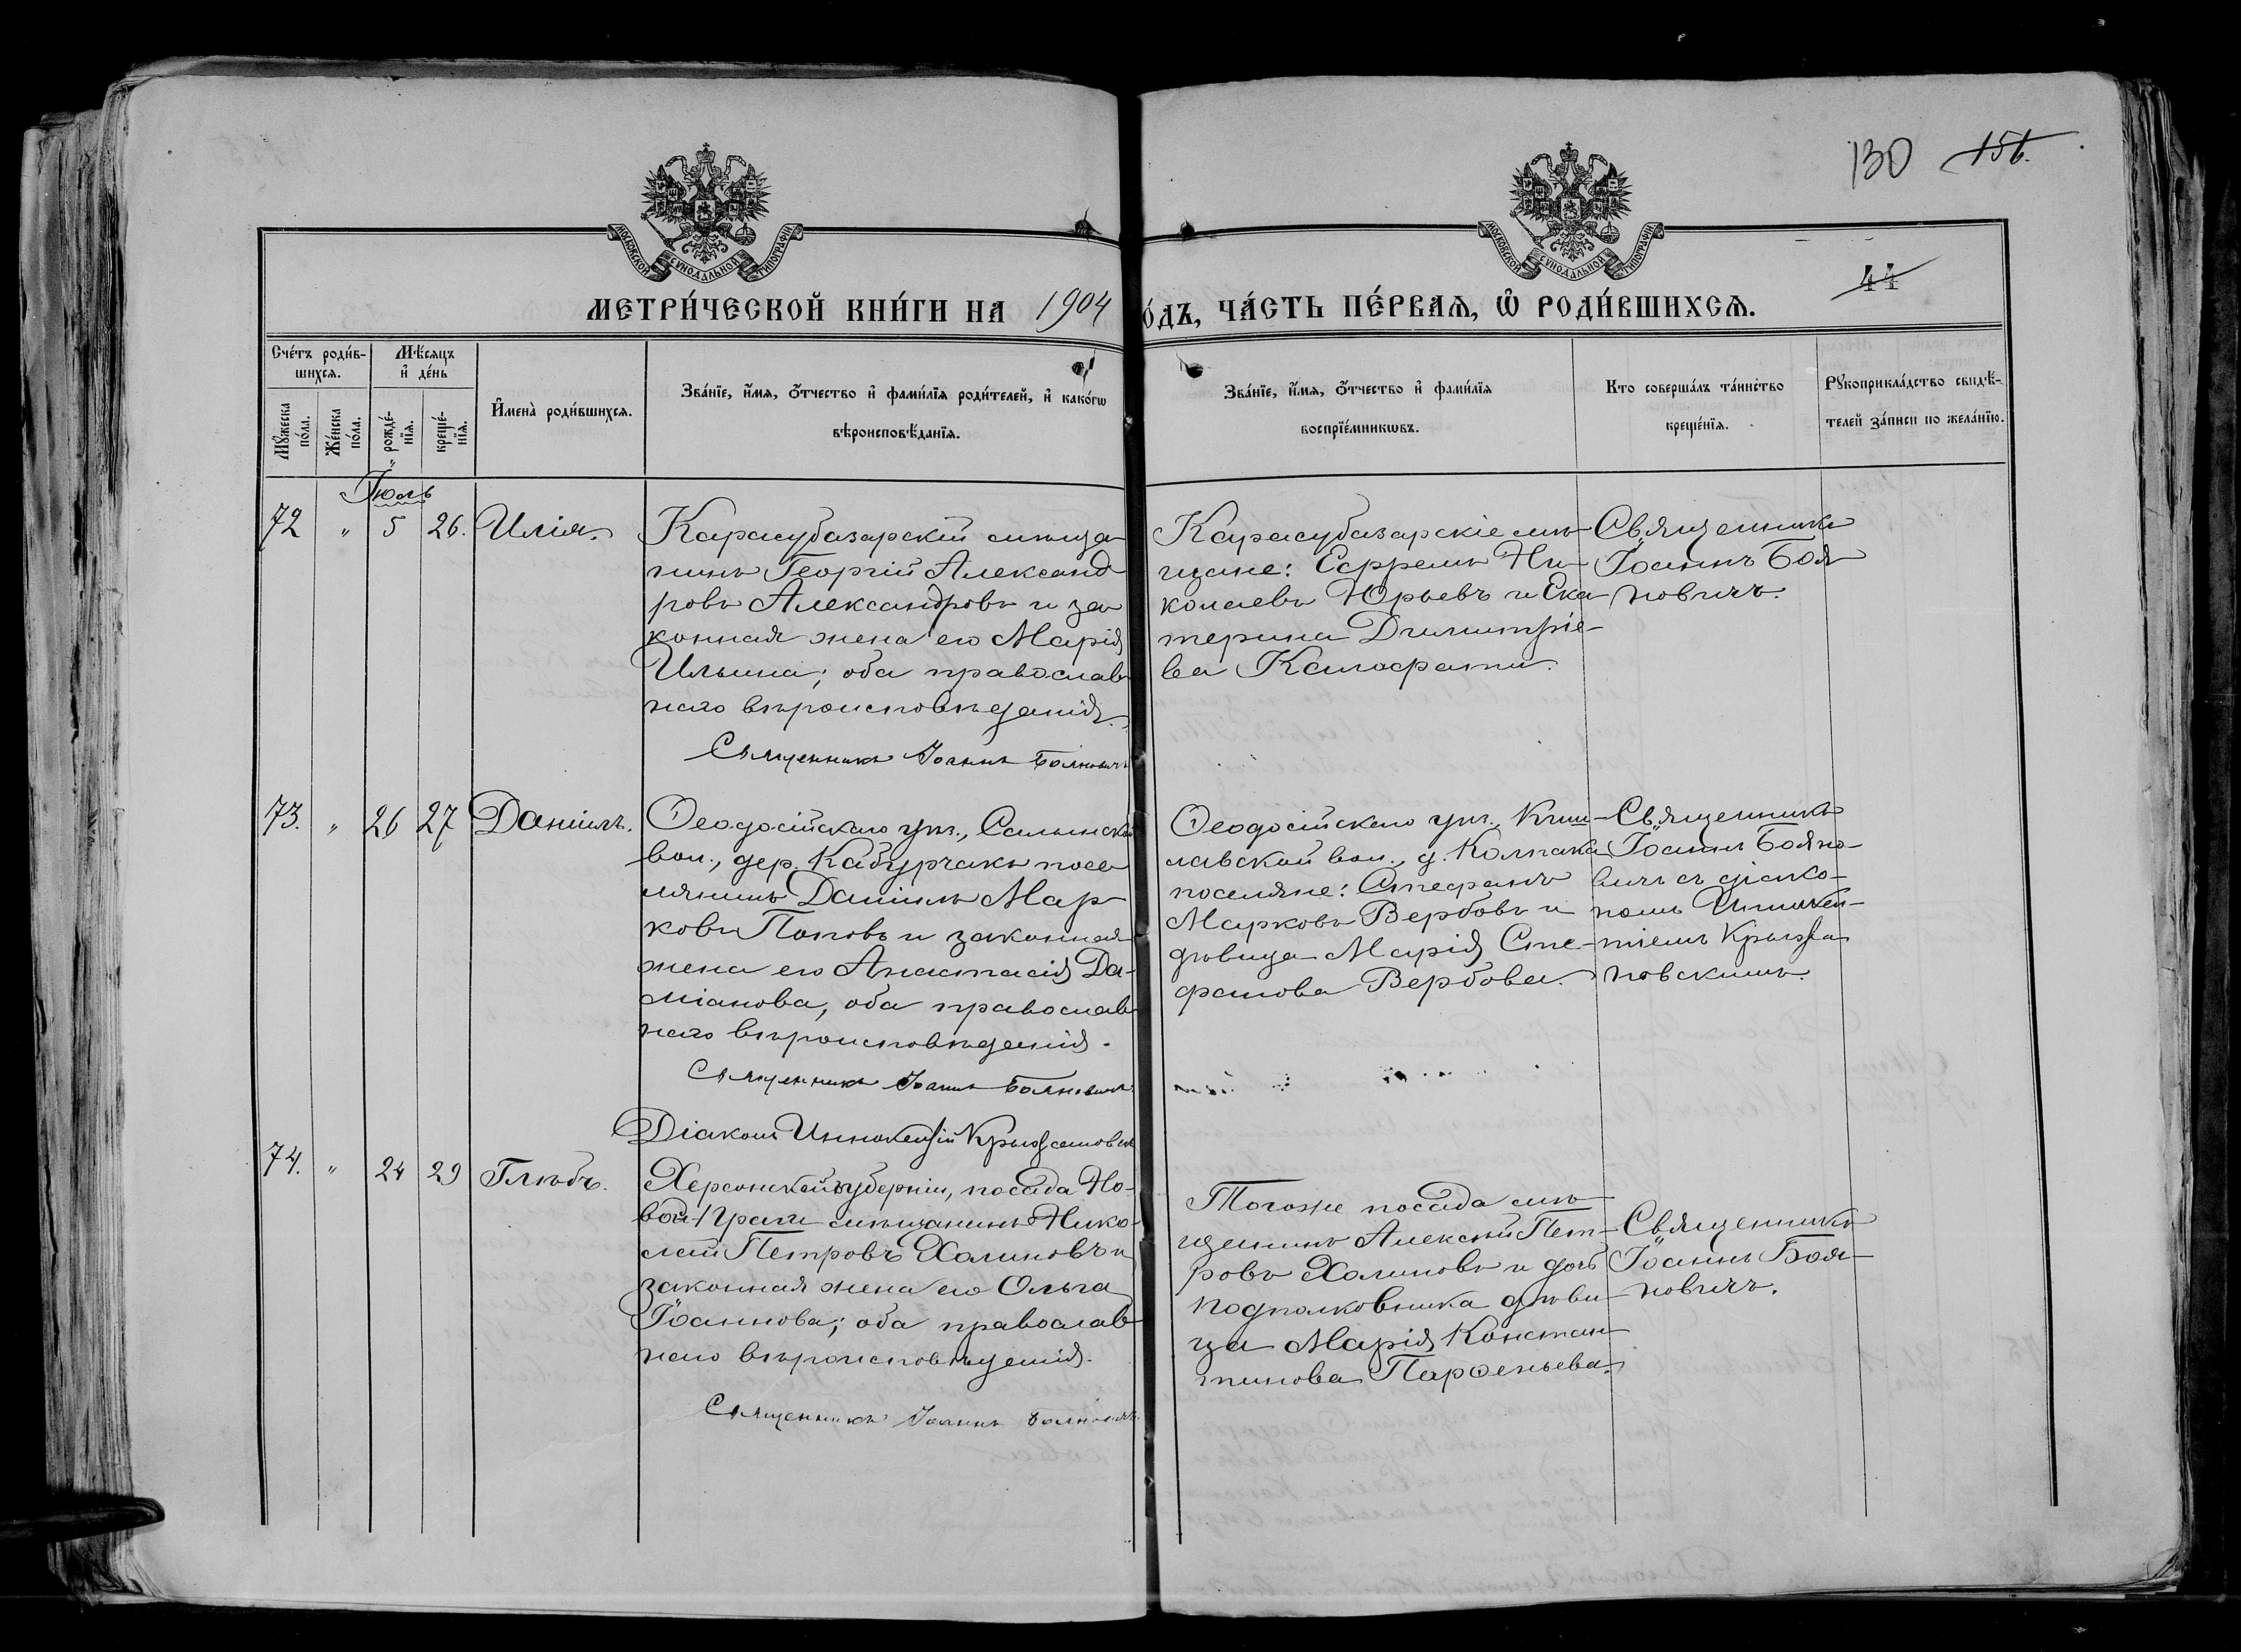 130 156.
МОСКОВСКОЙ СѴНОДАЛЬНОЙ ТИПОГРАФІИ
МОСКОВСКОЙ СѴНОДАЛЬНОЙ ТИПОГРАФІИ
44
МЕТРИ́ЧЕСКОЙ КНИ́ГИ НА 1904 О́ДЪ, ЧА́СТЬ ПЕ́РВАѦ, Ѿ РОДИ́ВШИХСѦ.
Сче́тъ роди́в-
шихсѧ.
Мꙋ́жеска
по́ла.
Же́нска
по́ла.
Мѣ́сѧцъ
и҆ де́нь
рожде́-
нїѧ.
креще́-
нїѧ.
И҆мена̀ роди́вшихсѧ.
Зва́нїе, и҆́мѧ, о҆́тчество и҆ фами́лїѧ роди́телей, и҆ како́гѡ
вѣроисповѣ́данїѧ.
Зва́нїе, и҆́мѧ, о҆́тчество и҆ фами́лїѧ
воспрїе́мникѡвъ.
Кто соверша́лъ та́инство
креще́нїѧ.
Рꙋкоприкла́дство свидѣ́-
телей за́писи по жела́нїю.
Іюль
72 " 5 26. Илія.
Карасубазарскій мѣща-
нинъ Георгій Александ-
ровъ Александровъ и за-
конная жена его Марія
Ильина; оба православ-
наго вѣроисповѣданія.
Священникъ Іоаннъ Бояновичъ
Карасубазарскіе мѣ-
щане: Ефремъ Ни-
колаевъ Юрьевъ и Ека-
терина Димитріе-
ва Калафати.
Священникъ
Іоаннъ Боя-
новичъ.
73. " 26 27 Даніилъ.
Ѳеодосійскаго уѣз., Салынской
вол., дер. Кабурчакъ посе-
лянинъ Даніилъ Мар-
ковъ Поповъ и законная
жена его Анастасія Да-
міанова, оба православ-
наго вѣроисповѣданія.
Священникъ Іоаннъ Бояновичъ
Діаконъ Иннокентій Крыжановск
Ѳеодосійскаго уѣз., Киш-
лавской вол., д. Колпака
поселяне: Стефанъ
Марковъ Вербовъ и
дѣвица Марія Сте-
фанова Вербова.
Священникъ
Іоаннъ Бояно-
вичъ съ діако-
номъ Иннокен-
тіемъ Крыжа-
новскимъ.
74. " 24 29 Глѣбъ.
Херсонской губерніи, посада Но-
вой-Праги мѣщанинъ Нико-
лай Петровъ Халиновъ и
законная жена его Ольга
Іоаннова; оба православ-
наго вѣроисповѣданія.
Священникъ Іоаннъ Бояновичъ
Того же посада мѣ-
щанинъ Алексѣй Пет-
ровъ Халиновъ и дочь
подполковника дѣви-
ца Марія Констан-
тинова Парѳеньева.
Священникъ
Іоаннъ Боя-
новичъ.